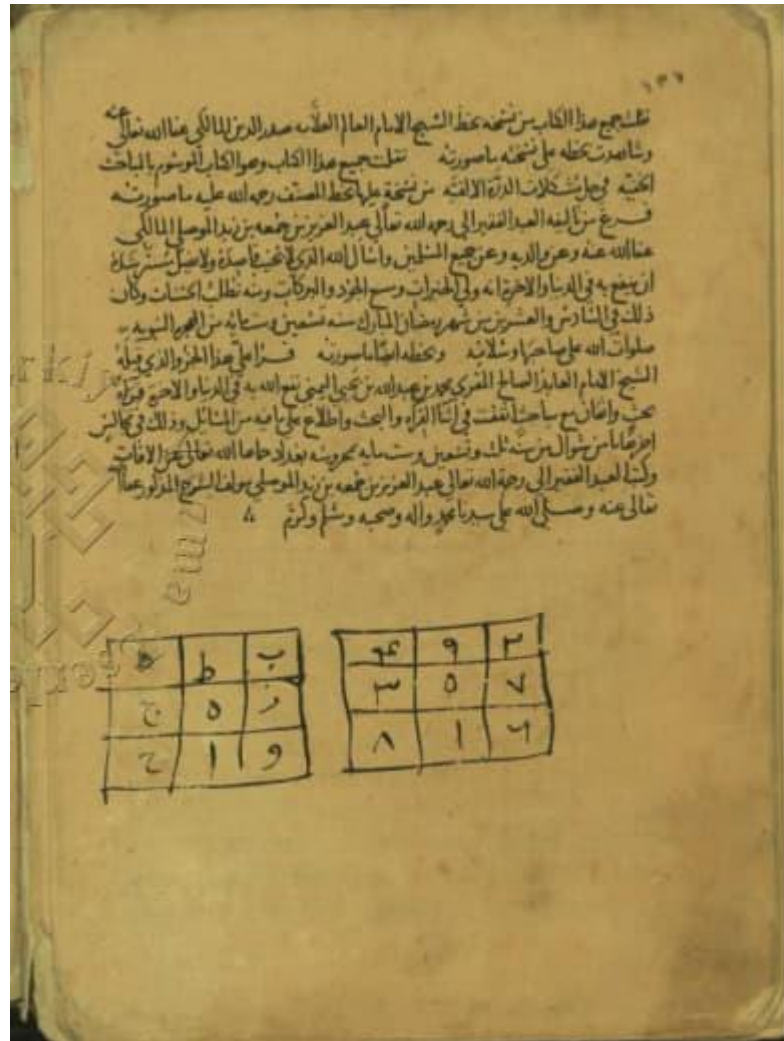 ١٣١
نقلت جميع هذا الكتاب من نسخة بخط الشيخ الامام العالم العلامه صدر الدين المالكي عفا الله تعالى عنه
وشاهدت بخطه على نسخته ما صورته نقلت جميع هذا الكتاب وهو الكتاب الموسوم بالمباحث
الخفيه في حل مشكلات الدرة الالفيه من نسخة عليها بخط المصنف رحمه الله عليه ما صورته
فرغ من تاليفه العبد الفقير الى رحمه الله تعالى عبد العزيز بن جمعه بن زيد الموصلي المالكي
عفا الله عنه وعن والديه وعن جميع المسلمين واسال الله الذي لا يخيب قاصده ولا يضل مسترشده
ان ينفع به في الدنيا والاخرة انه ولي الخيرات وسع الجود والبركات ومنه تطلب الحسنات وكان
ذلك في السادس والعشرين من شهر رمضان المبارك سنه تسعين وستمايه من الهجره النبويه
صلوات الله على صاحبها وسلامه وبخطه ايضا ما صورته قرا علي هذا الجزو والذي قبله
الشيخ الامام العابد الصالح المقري محمد بن عبد الله بن يحيى اليمني نفع الله به في الدنيا والاخرة قراة
بحث واتقان مع مباحث اتفقت في اثنا القراه والبحث واطلاع على ما فيه من المسائل وذلك في مجالس
اخرها ثامن شوال من سنه ثلث وتسعين وست مايه بمحروسه بغداد حماها الله تعالى من الافات
وكتب العبد الفقير الى رحمة الله تعالى عبد العزيز بن جمعه بن زيد الموصلي مولف الشرح المذكور عفا الله
تعالى عنه وصلى الله على سيدنا محمد واله وصحبه وسلم وكرم
۴ ٩ ٢
٣ ٥ ٧
٨ ١ ٦
ب ط د
ز ه ج
و ا ح